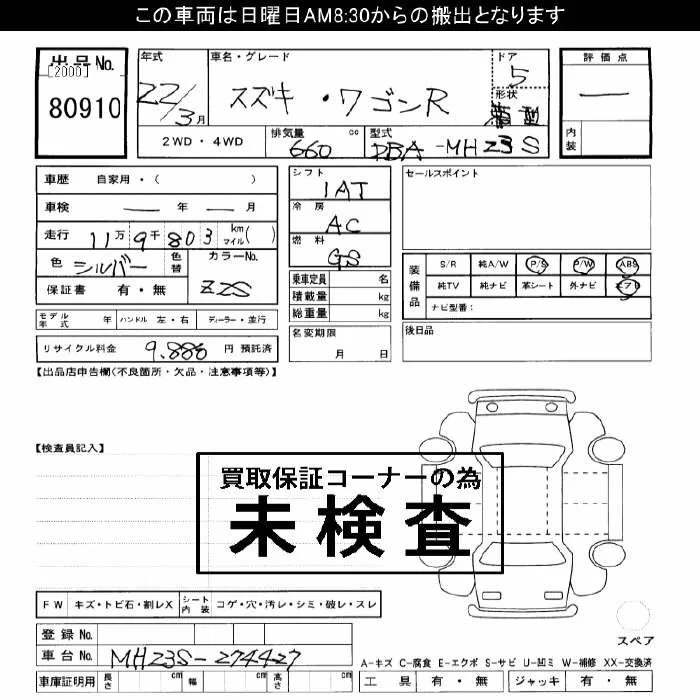 この車両は日曜日AM8:30からの搬出となります
出品No.
[2000]
80910
年式
22/3月
車名・グレード
スズキ・ワゴンR
ドア
5
形状
箱型
評価点
—
内装
2WD・4WD
排気量 660 cc
型式 DBA-MH23S
車歴 自家用・( )
車検 — 年 — 月
走行 11万9千803 km マイル( )
色 シルバー 色替
カラーNo. Z2S
保証書 有・無
モデル年式 年 ハンドル 左・右 ディーラー・並行
リサイクル料金 9.880 円 預託済
シフト
IAT
冷房
AC
燃料
GS
乗車定員 名
積載量 kg
総重量 kg
名変期限
月 日
セールスポイント
装備品
S/R 純A/W P/S P/W ABS
純TV 純ナビ 革シート 外ナビ エアB
ナビ型番:
後日品
【出品店申告欄(不良箇所・欠品・注意事項等)】
【検査員記入】
買取保証コーナーの為
未検査
FW キズ・トビ石・割レX シート内装 コゲ・穴・汚レ・シミ・破レ・スレ
登録No.
車台No. MH23S-274427
車庫証明用 長さ cm 幅 cm 高さ cm
スペア
A-キズ C-腐食 E-エクボ S-サビ U-凹ミ W-補修 XX-交換済
工具 有・無 ジャッキ 有・無